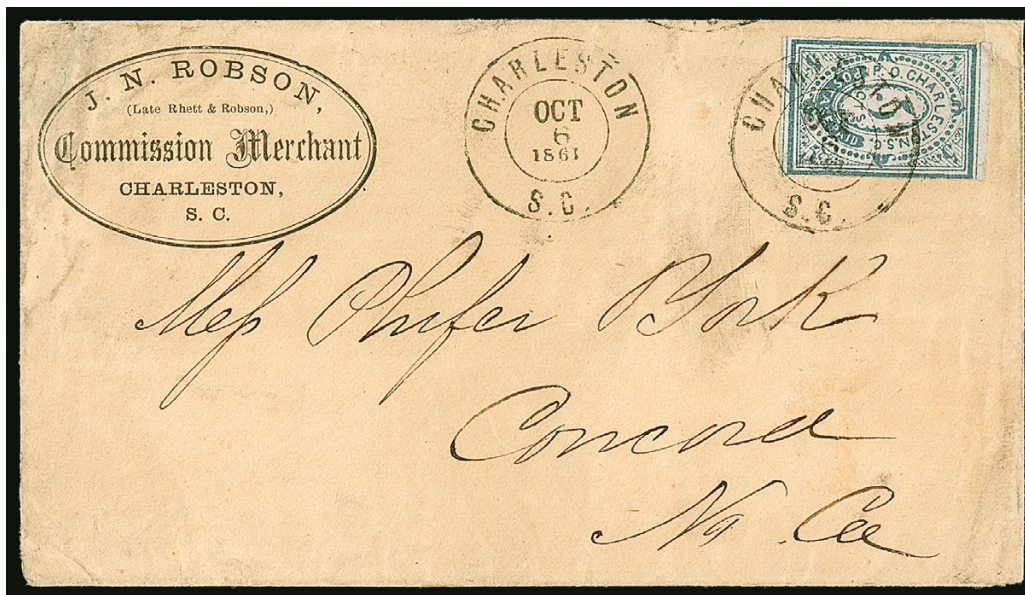 J. N. ROBSON,
(Late Rhett & Robson,)
Commission Merchant
CHARLESTON,
S. C.
CHARLESTON
OCT
6
1861
S. C.
CHARLESTON
S. C.
P.O. CHARLESTON, S.C.
Mess Phifer & York
Concord
No. Ca